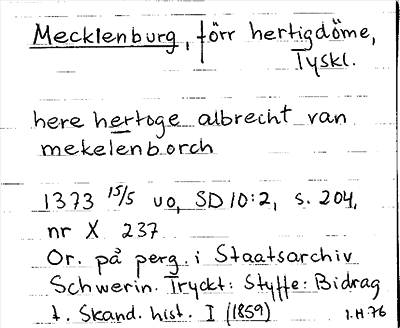 Mecklenburg, förr hertigdöme,
Tyskl.
here hertoge albrecht van
mekelenborch
1373 15/5 uo, SD 10:2, s. 204,
nr X 237
Or. på perg. i Staatsarchiv
Schwerin. Tryckt: Styffe: Bidrag
t. Skand. hist. I (1859)
1.H.76